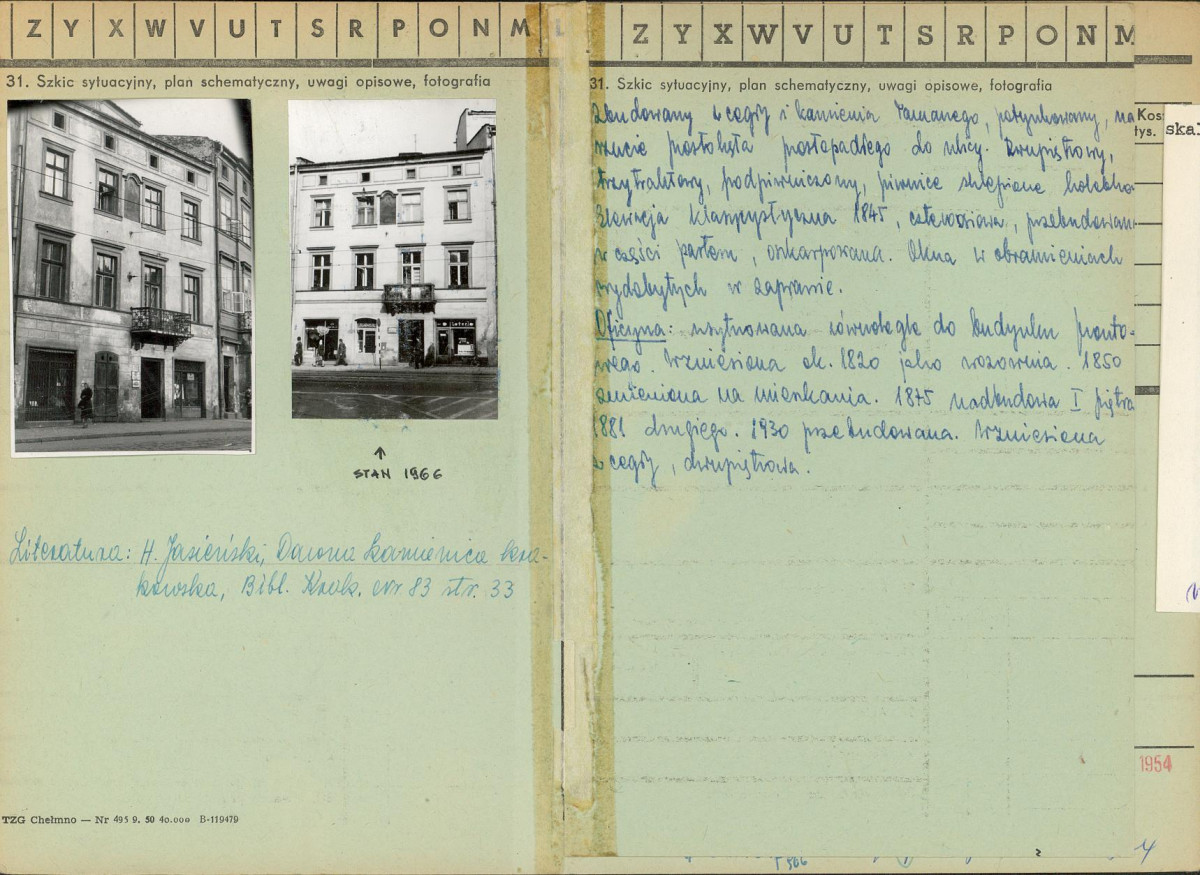 Z Y X W V U T S R P O N M L
31. Szkic sytuacyjny, plan schematyczny, uwagi opisowe, fotografia
STAN 1966
Literatura: H. Jasieński, Dawna kamienica kra-
kowska, Bibl. Krak. nr 83 str. 33
TZG Chełmno — Nr 495 9. 50 40.000 B-119479
Z Y X W V U T S R P O N M
31. Szkic sytuacyjny, plan schematyczny, uwagi opisowe, fotografia
Zbudowany z cegły i kamienia łamanego, potynkowany, na
rzucie prostokąta prostopadłego do ulicy. Dwupiętrowy,
trzytraktowy, podpiwniczony, piwnice sklepione kolebko
Elewacja klasycystyczna 1845, czteroosiowa, przebudowan
w części parteru, oskarpowana. Okna w obramieniach
wydobytych w zaprawie.
Oficyna: usytuowana równolegle do budynku fronto-
wego. Wzniesiona ok. 1820 jako wozownia. 1850
zmieniona na mieszkania. 1875 nadbudowa I piętra
1881 drugiego. 1930 przebudowana. Wzniesiona
z cegły, dwupiętrowa.
Kosz
tys.
ska
1954